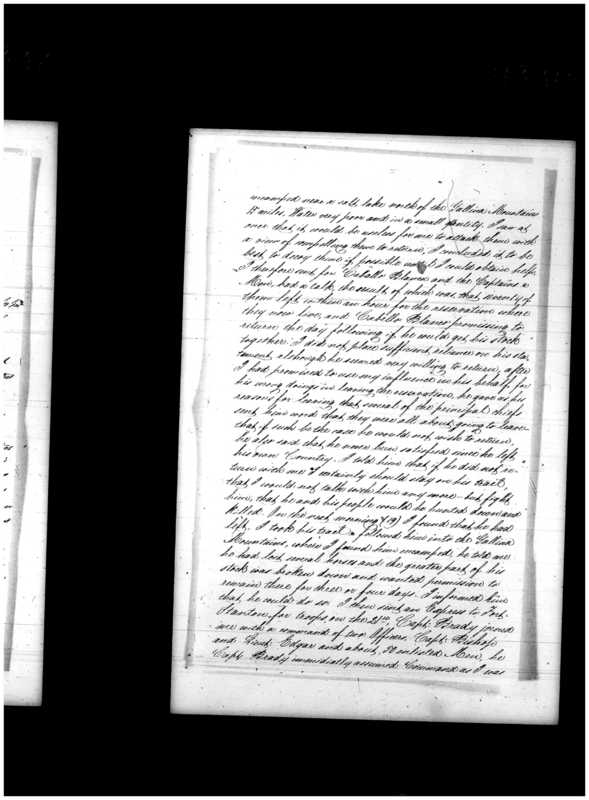 encamped near a salt lake north of the Gallina Mountains
15 miles. Water very poor and in a small quantity. I saw at
once that it would be useless for me to attack them with
a view of compelling them to return, I concluded it to be
best to decoy them if possible until I could obtain help.
I therefore sent for Caballo Blanco and the Captains a
Men, had a talk, the result of which was, that seventy of
them left within an hour for the reservation where
they now live, and Caballo Blanco promising to
return the day following if he could get his stock
together. I did not place sufficient reliance on his sta-
tement, although he seemed very willing to return, after
I had promised to use my influence in his behalf, for
his wrong doings in leaving the reservation, he gave as his
reasons for leaving that several of the principal chiefs
sent him word that they were all about going to leave
that if such be the case he would not wish to return,
he also said that he never been satisfied since he left
his own Country. I told him that if he did not re-
turn with me I certainly should stay on his track,
that I would not talk with him any more but fight
him, that he and his people would be hunted down and
killed. On the next morning (19) I found that he had
left. I took his trail & followed him into the Gallina
Mountains, where I found him encamped, he told me
he had lost several horses and the greater part of his
stock was broken down and wanted permission to
remain there for three or four days. I informed him
that he could do so. I then sent an Express to Fort
Stanton for troops on the 21st Capt. Brady joined
me with a command of two Officers Capt. Bishop
and Lieut. Edgar and about 50 enlisted Men, he
Capt. Brady immidiatly assumed Command as I was